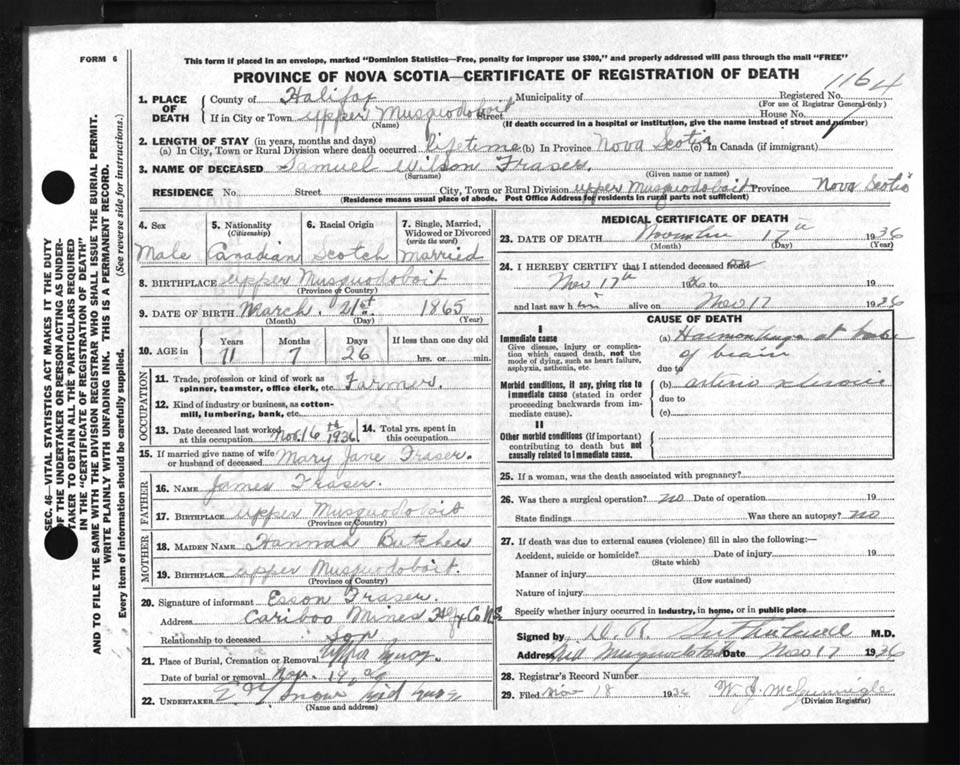 FORM 6
This form if placed in an envelope, marked "Dominion Statistics—Free, penalty for improper use $300," and properly addressed will pass through the mail "FREE"
PROVINCE OF NOVA SCOTIA—CERTIFICATE OF REGISTRATION OF DEATH
1164
1. PLACE OF DEATH
County of Halifax Municipality of Registered No.
(For use of Registrar General only)
If in City or Town Upper Musquodoboit Street House No.
(Name) (If death occurred in a hospital or institution, give the name instead of street and number)
2. LENGTH OF STAY (in years, months and days)
(a) In City, Town or Rural Division where death occurred lifetime (b) In Province Nova Scotia (c) In Canada (if immigrant)
3. NAME OF DECEASED Samuel Wilson Fraser.
(Surname) (Given name or names)
RESIDENCE No. Street City, Town or Rural Division upper Musquodoboit Province Nova Scotia
(Residence means usual place of abode. Post Office Address for residents in rural parts not sufficient)
4. Sex 5. Nationality (Citizenship) 6. Racial Origin 7. Single, Married, Widowed or Divorced (write the word)
Male Canadian Scotch married
8. BIRTHPLACE upper Musquodoboit
(Province or Country)
9. DATE OF BIRTH March. 21st 1865
(Month) (Day) (Year)
10. AGE in Years Months Days If less than one day old
71 7 26 hrs. or min.
OCCUPATION
11. Trade, profession or kind of work as spinner, teamster, office clerk, etc. Farmer.
12. Kind of industry or business, as cotton-mill, lumbering, bank, etc.
13. Date deceased last worked at this occupation Nov. 16th 1936 14. Total yrs. spent in this occupation
15. If married give name of wife or husband of deceased Mary Jane Fraser.
FATHER
16. NAME James Fraser.
17. BIRTHPLACE upper Musquodoboit
(Province or Country)
MOTHER
18. MAIDEN NAME Hannah Butcher
19. BIRTHPLACE upper Musquodoboit.
(Province or Country)
20. Signature of informant Esson Fraser.
Address Cariboo Mines Hfx Co N.S
Relationship to deceased Son
21. Place of Burial, Cremation or Removal Upper Musq.
Date of burial or removal Nov. 19
22. UNDERTAKER Snow Mid Musq
(Name and address)
MEDICAL CERTIFICATE OF DEATH
23. DATE OF DEATH November 17th 1936
(Month) (Day) (Year)
24. I HEREBY CERTIFY that I attended deceased from
Nov 17th 1936 to 19
and last saw him alive on Nov 17 1936
CAUSE OF DEATH
I
Immediate cause (a) Haemorrhage at base
Give disease, injury or complication which caused death, not the mode of dying, such as heart failure, asphyxia, asthenia, etc. of brain
due to
Morbid conditions, if any, giving rise to immediate cause (stated in order proceeding backwards from immediate cause). (b) arterio sclerosis
due to
(c)
II
Other morbid conditions (if important) contributing to death but not causally related to immediate cause.
25. If a woman, was the death associated with pregnancy?
26. Was there a surgical operation? no Date of operation 19
State findings Was there an autopsy? no
27. If death was due to external causes (violence) fill in also the following:—
Accident, suicide or homicide? Date of injury 19
(State which)
Manner of injury
(How sustained)
Nature of injury
Specify whether injury occurred in industry, in home, or in public place
Signed by D. R. Sutherland M.D.
Address Mid Musquodoboit Date Nov 17 1936
28. Registrar's Record Number
29. Filed Nov 18 1936 W. J.
(Division Registrar)
SEC. 46—VITAL STATISTICS ACT MAKES IT THE DUTY
OF THE UNDERTAKER OR PERSON ACTING AS UNDERTAKER TO OBTAIN ALL THE PARTICULARS REQUIRED
IN THE "CERTIFICATE OF REGISTRATION OF DEATH"
AND TO FILE THE SAME WITH THE DIVISION REGISTRAR WHO SHALL ISSUE THE BURIAL PERMIT.
WRITE PLAINLY WITH UNFADING INK. THIS IS A PERMANENT RECORD.
Every item of information should be carefully supplied. (See reverse side for instructions.)